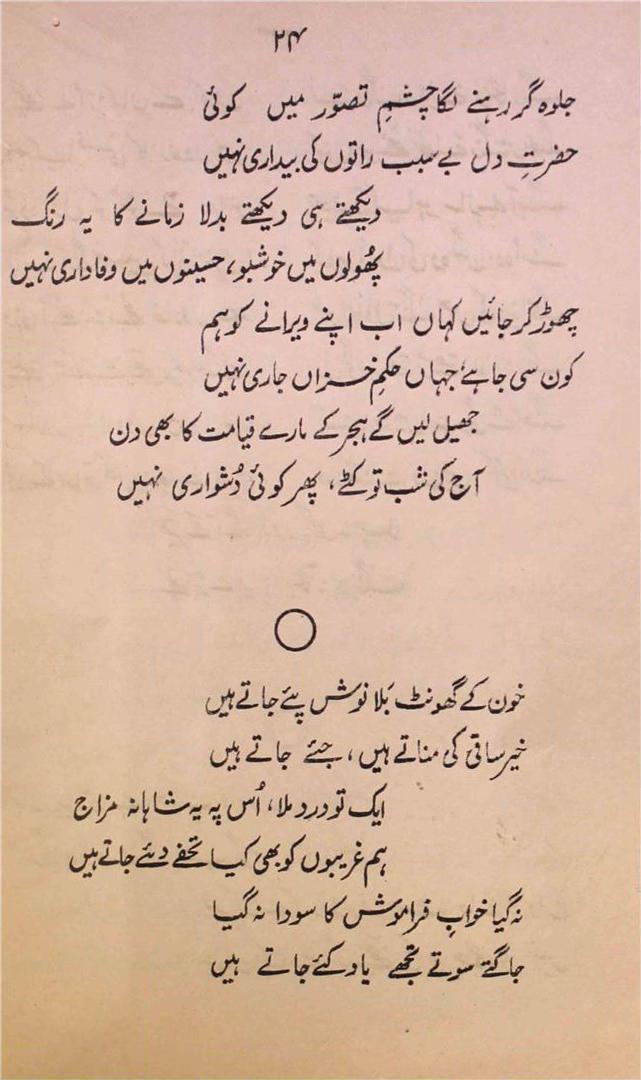 ۲۴
جلوہ گر رہنے لگا چشمِ تصوّر میں کوئی
حضرتِ دل بے سبب راتوں کی بیداری نہیں
دیکھتے ہی دیکھتے بدلا زمانے کا یہ رنگ
پھُولوں میں خوشبو، حسینوں میں وفاداری نہیں
چھوڑ کر جائیں کہاں اب اپنے ویرانے کو ہم
کون سی جا ہے جہاں حکمِ خزاں جاری نہیں
جھیل لیں گے ہجر کے مارے قیامت کا بھی دن
آج کی شب تو کٹے، پھر کوئی دُشواری نہیں
خون کے گھونٹ بَلا نوش پئے جاتے ہیں
خیر ساقی کی مناتے ہیں، جئے جاتے ہیں
ایک تو درد ملا، اُس پہ یہ شاہانہ مزاج
ہم غریبوں کو بھی کیا تحفے دئے جاتے ہیں
نہ گیا خوابِ فراموش کا سودا نہ گیا
جاگتے سوتے تجھے یاد کئے جاتے ہیں